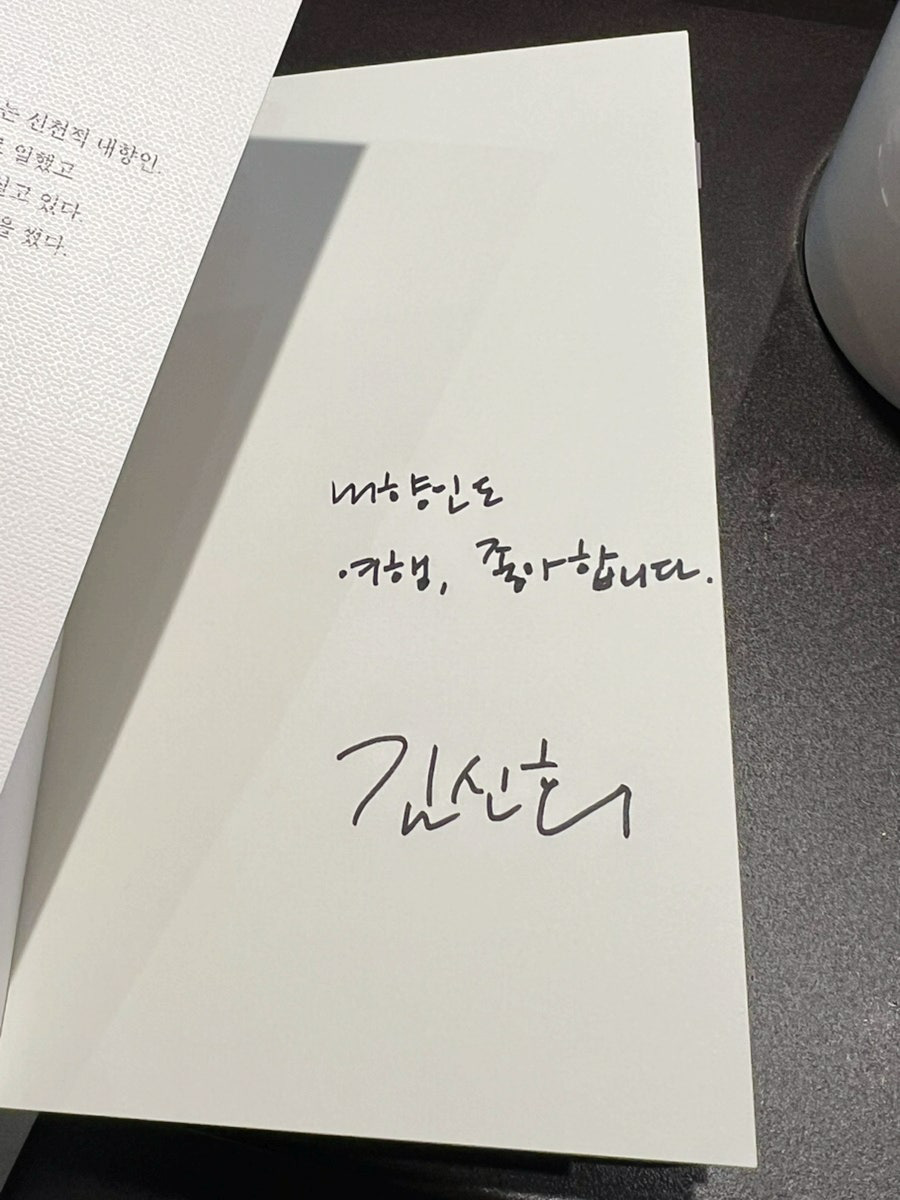 는 신천적 내향인.
로 일했고
살고 있다.
을 썼다.
내향인도
여행, 좋아합니다.
김신회